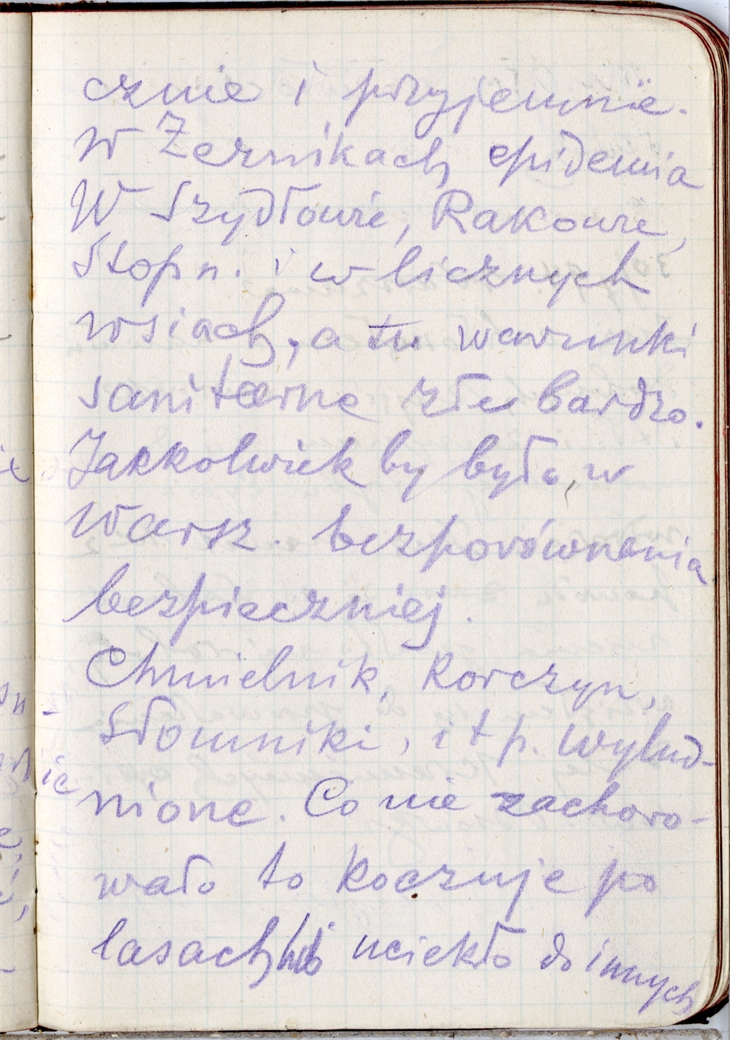 cznie i przyjemnie.
W Żernikach epidemia
W Szydłowie, Rakowie,
Stopn. i w licznych
wsiach, a tu warunki
sanitarne złe bardzo.
Jakkolwiek by było, w
Warsz. bezporównania
bezpieczniej.
Chmielnik, Korczyn,
Słomniki, itp. wylud-
nione. Co nie zachoro-
wało to koczuje po
lasach lub uciekło do innych